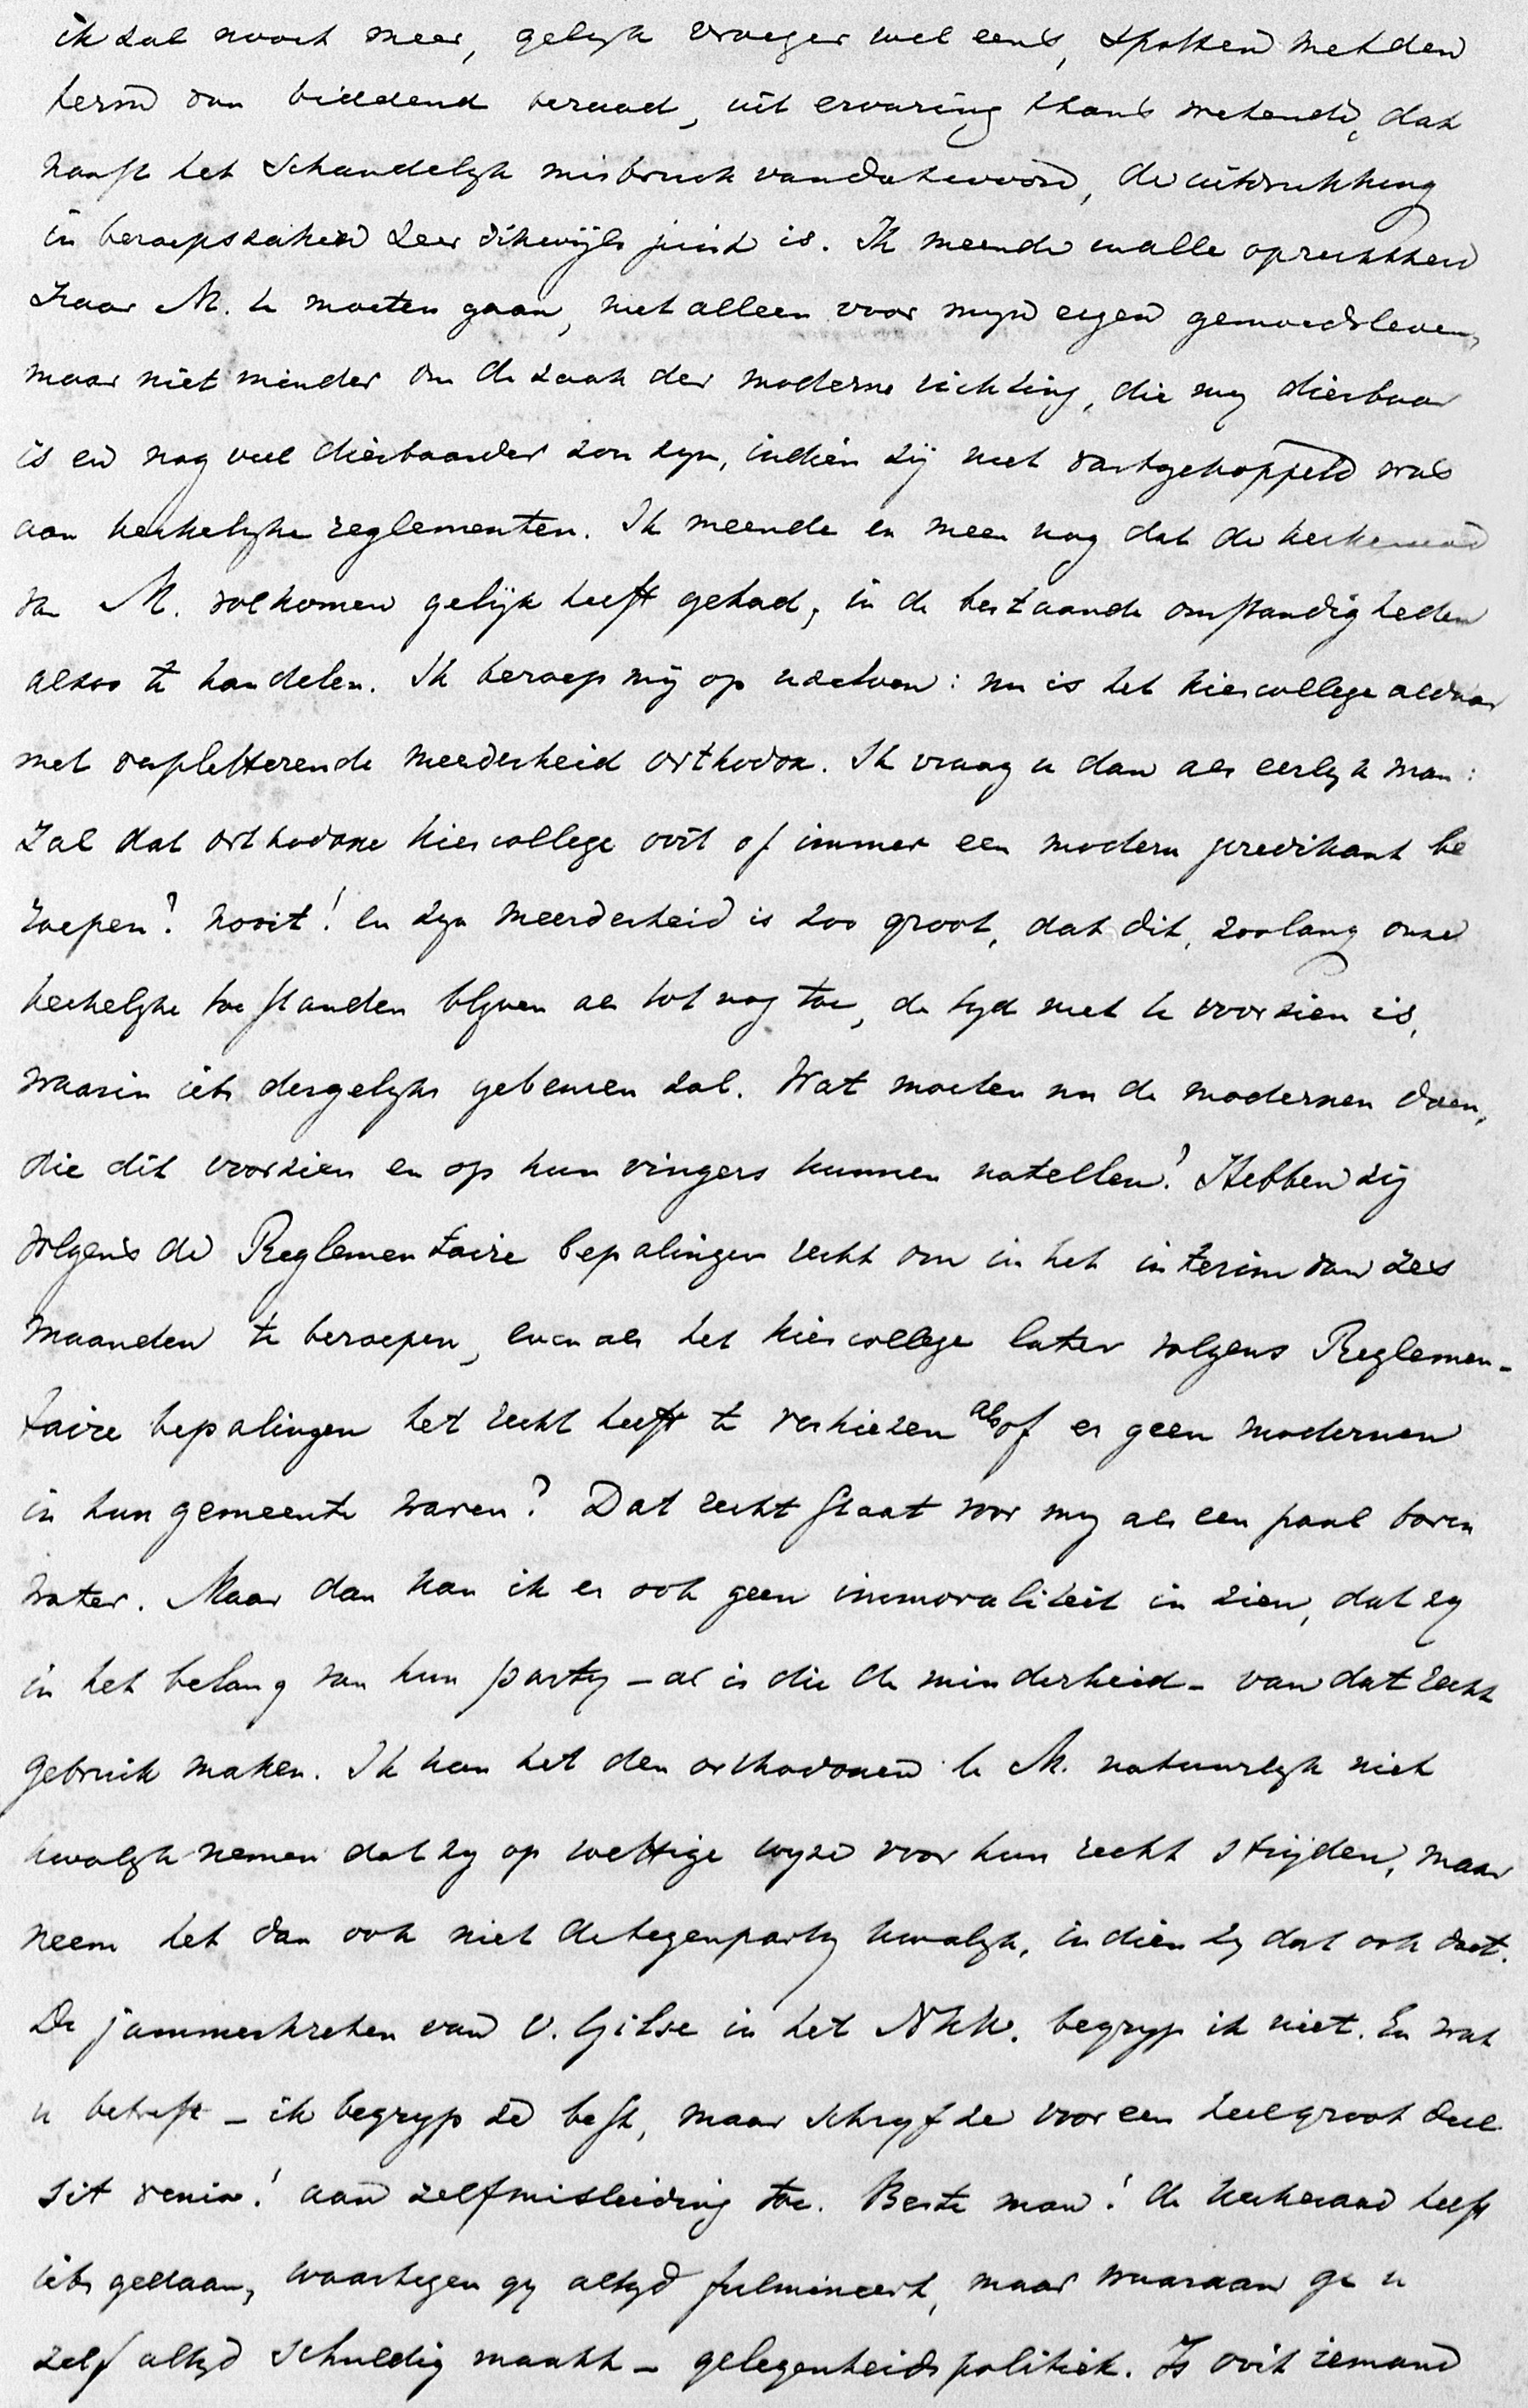 ik zal nooit meer, gelijk vroeger wel eens, spotten met den
term van biddend beraad, uit ervaring thans wetende, dat
naast het schandelijk misbruik van dat woord, de uitdrukking
in beroepszaken zeer dikwijls juist is. Ik meende in alle oprechtheid
naar M. te moeten gaan, niet alleen voor mijn eigen gemoedsleven,
maar niet minder om de zaak der moderne richting, die mij dierbaar
is en nog veel dierbaarder zou zijn, indien zij niet vastgekoppeld was
aan kerkelijke reglementen. Ik meende en meen nog dat de kerkeraad
van M. volkomen gelijk heeft gehad, in de bestaande omstandigheden
alzoo te handelen. Ik beroep mij op uzelven: nu is het kiescollege aldaar
met verpletterende meerderheid orthodox. Ik vraag u dan als eerlijk man:
Zal dat orthodoxe kiescollege ooit of immer een modern predikant be
roepen? nooit! En zijn meerderheid is zoo groot, dat dit, zoolang onze
kerkelijke toestanden blijven als tot nog toe, de tijd niet te voorzien is,
waarin iets dergelijks gebeuren zal. Wat moeten nu de modernen doen,
die dit voorzien en op hun vingers kunnen natellen? Hebben zij
volgens de Reglementaire bepalingen recht om in het interim van zes
maanden te beroepen, even als het kiescollege later volgens Reglemen-
taire bepalingen het recht heeft te verkiezen alsof er geen modernen
in hun gemeente waren? Dat recht staat voor mij als een paal boven
water. Maar dan kan ik er ook geen immoraliteit in zien, dat zij
in het belang van hun partij – al is die de minderheid – van dat recht
gebruik maken. Ik kan het den orthodoxen te M. natuurlijk niet
kwalijk nemen dat zij op wettige wijze voor hun recht strijden, maar
neem het dan ook niet de tegenpartij kwalijk, indien zij dat ook doet.
De jammerkreten van v. Gilse in het NKW. begrijp ik niet. En wat
u betreft – ik begrijp ze best, maar schrijf ze voor een heel groot deel
sit venia! aan zelfmisleiding toe. Beste man! de kerkeraad heeft
iets gedaan, waartegen gij altijd fulmineert, maar waaraan ge u
zelf altijd schuldig maakt – gelegenheidspolitiek. Is ooit iemand